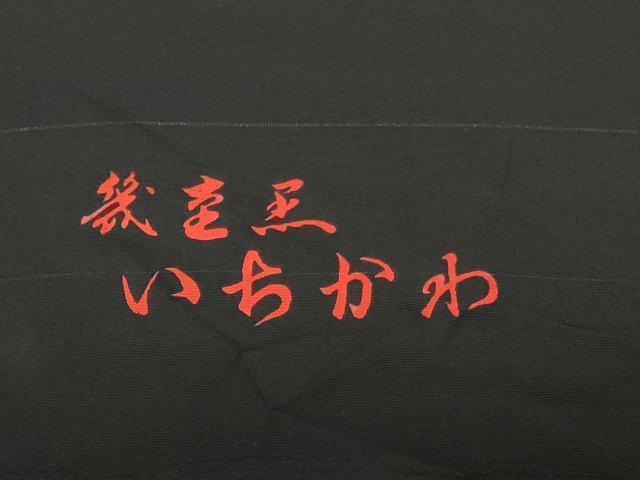 幾重黒
いちかわ